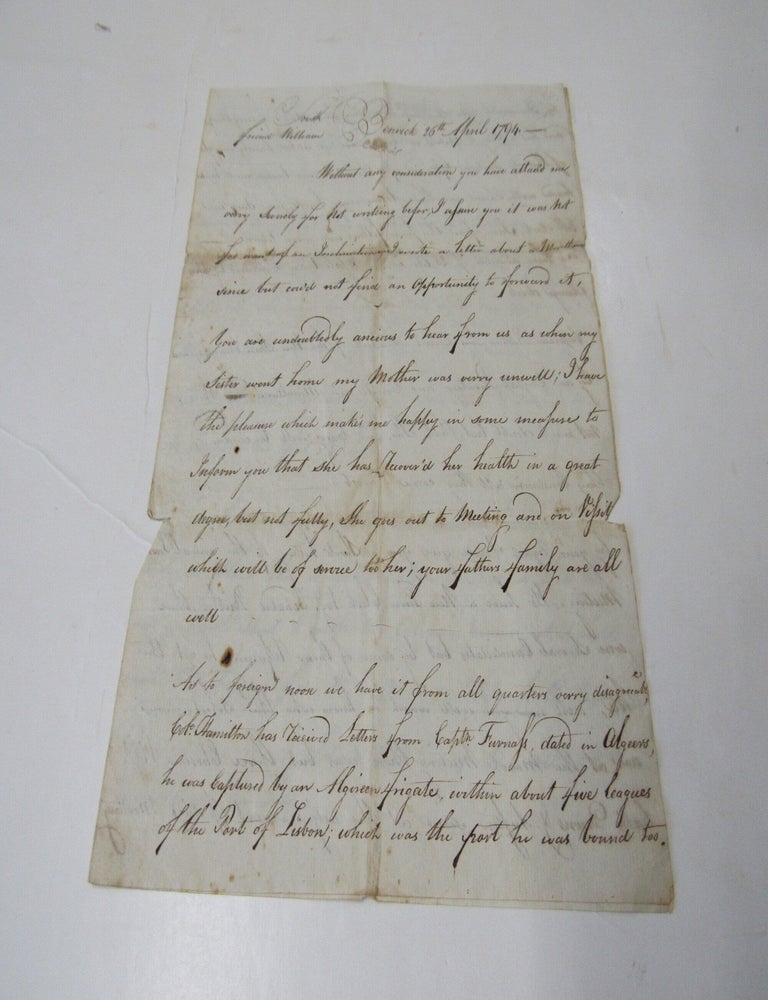 South
Berwick 26th April 1794 —
friend William
Without any consideration you have attack'd me
verry severely for Not writing befor, I assure you it was Not
for want of an Inclination, I wrote a letter about a Month
since but cou'd not find an Opportunity to forward it,
You are undoubtedly ancious to hear from us as when my
Sister went home my Mother was verry unwell; I have
the pleasure which makes me happy in some measure to
Inform you that she has Recover'd her health in a great
degree, but not fully, She goes out to Meeting and on Vissit
which will be of service too her; your fathers family are all
well
As to foreign noos we have it from all quarters verry disagreeable,
Colo. Hamilton has Received Letters from Captn. Furnass, dated in Algeers,
he was Captured by an Algireen frigate, within about five leagues
of the Port of Lisbon; which was the port he was bound too.